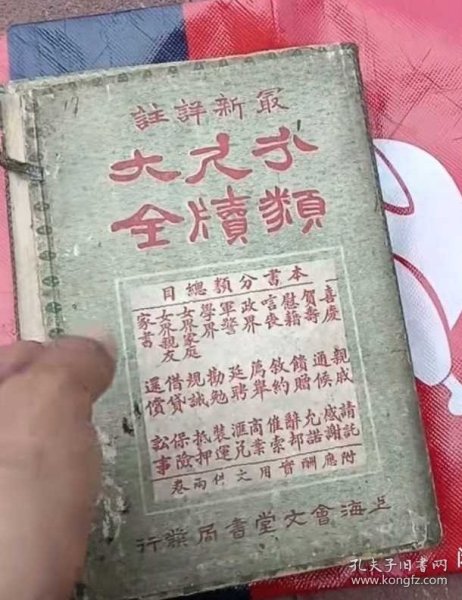 最新詳註
分類
尺牘
大全
本書分類總目
喜慶 賀壽 慰藉 唁喪 政界 軍警 學界 女界家庭 女界親友 家書
親戚 通候 餽贈 敘約 薦舉 延聘 勸勉 規誡 借貸 還償
請託 感謝 允諾 辭却 催索 商業 匯兌 裝運 抵押 保險 訟事
附應酬實用文供兩卷
上海會文堂書局發行
孔夫子旧书网
www.kongfz.com